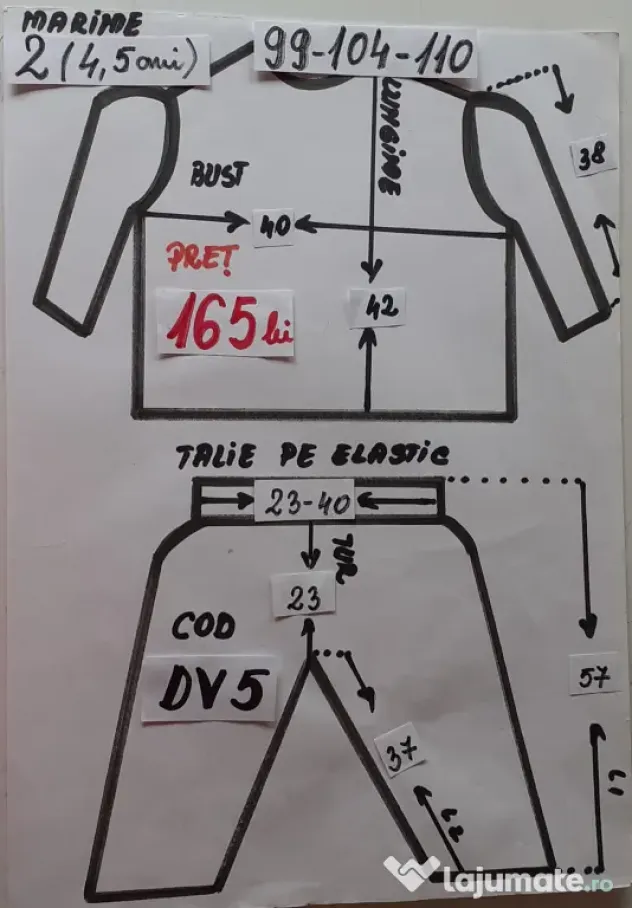 MARIME
2 (4,5 ani)
99-104-110
LUNGIME
38
BUST
40
PREȚ
165 lei
42
TALIE PE ELASTIC
23-40
TUR
23
COD
DV5
57
37
L1
L2
lajumate.ro